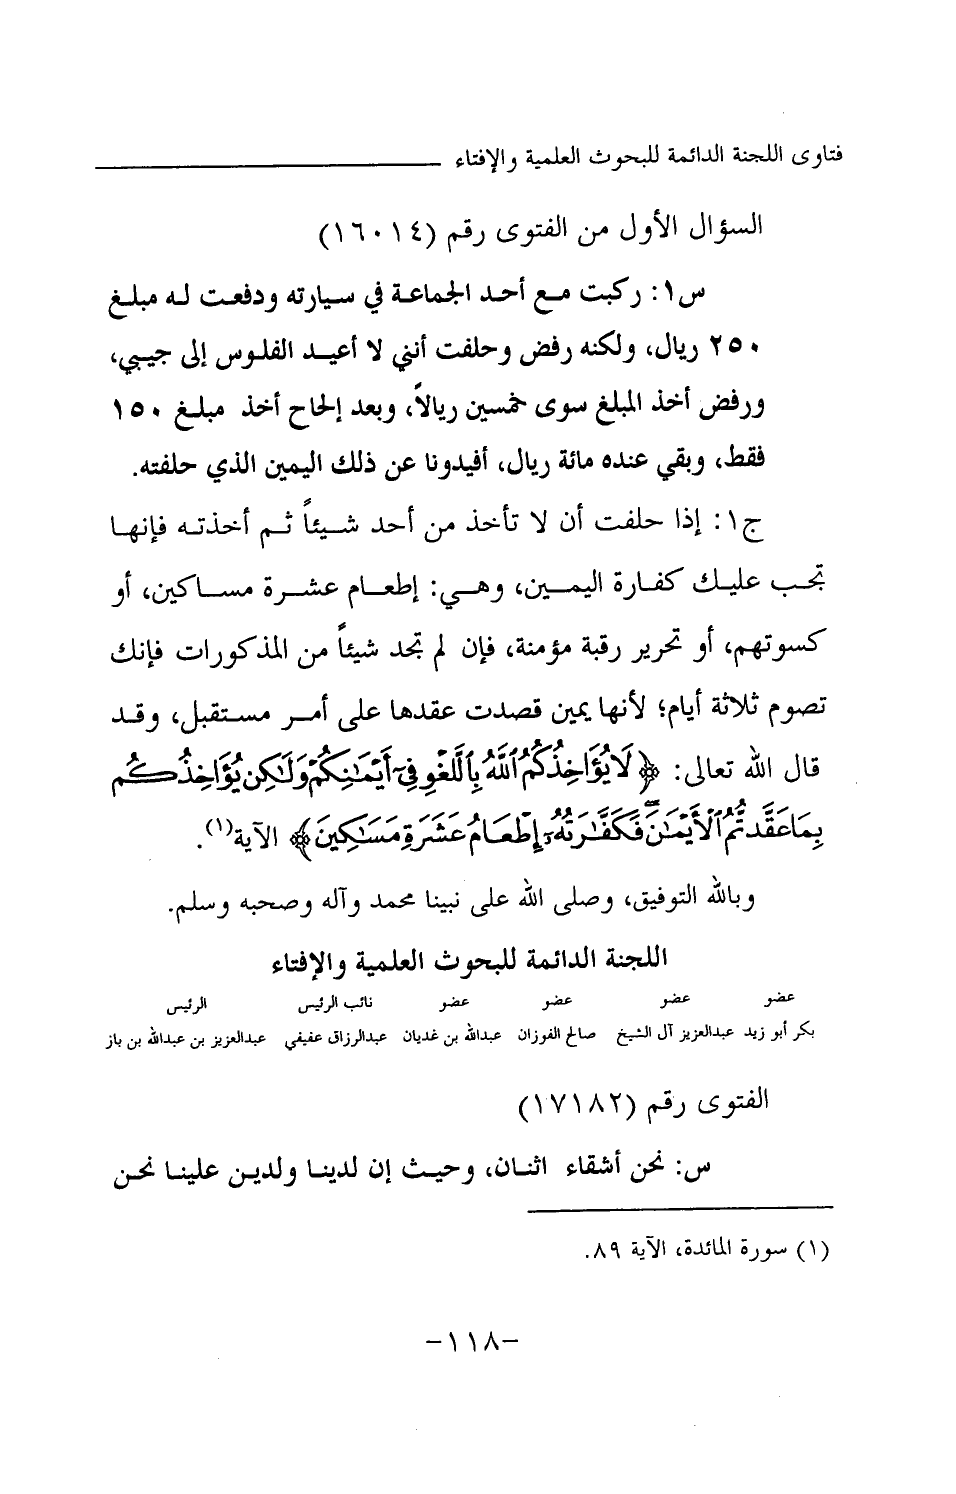 فتاوى اللجنة الدائمة للبحوث العلمية والإفتاء
السؤال الأول من الفتوى رقم (١٦٠١٤)
س١: ركبت مع أحد الجماعة في سيارته ودفعت له مبلغ
٢٥٠ ريال، ولكنه رفض وحلفت أنني لا أعيد الفلوس إلى جيبي،
ورفض أخذ المبلغ سوى خمسين ريالاً، وبعد إلحاح أخذ مبلغ ١٥٠
فقط، وبقي عنده مائة ريال، أفيدونا عن ذلك اليمين الذي حلفته.
ج١: إذا حلفت أن لا تأخذ من أحد شيئاً ثم أخذته فإنها
تجب عليك كفارة اليمين، وهي: إطعام عشرة مساكين، أو
كسوتهم، أو تحرير رقبة مؤمنة، فإن لم تجد شيئاً من المذكورات فإنك
تصوم ثلاثة أيام؛ لأنها يمين قصدت عقدها على أمر مستقبل، وقد
قال الله تعالى: ﴿لَا يُؤَاخِذُكُمُ ٱللَّهُ بِٱللَّغْوِ فِىٓ أَيْمَٰنِكُمْ وَلَٰكِن يُؤَاخِذُكُم
بِمَا عَقَّدتُّمُ ٱلْأَيْمَٰنَ ۖ فَكَفَّٰرَتُهُۥٓ إِطْعَامُ عَشَرَةِ مَسَٰكِينَ﴾ الآية(١).
وبالله التوفيق، وصلى الله على نبينا محمد وآله وصحبه وسلم.
اللجنة الدائمة للبحوث العلمية والإفتاء
عضو عضو عضو عضو نائب الرئيس الرئيس
بكر أبو زيد عبدالعزيز آل الشيخ صالح الفوزان عبدالله بن غديان عبدالرزاق عفيفي عبدالعزيز بن عبدالله بن باز
الفتوى رقم (١٧١٨٢)
س: نحن أشقاء اثنان، وحيث إن لدينا ولدين علينا نحن
(١) سورة المائدة، الآية ٨٩.
-١١٨-